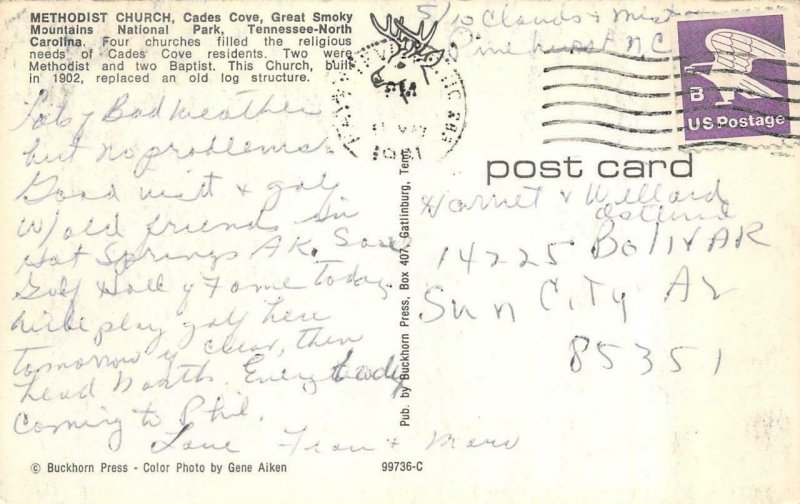 METHODIST CHURCH, Cades Cove, Great Smoky
Mountains National Park, Tennessee-North
Carolina. Four churches filled the religious
needs of Cades Cove residents. Two were
Methodist and two Baptist. This Church, built
in 1902, replaced an old log structure.
5/10 Clouds + Mist
Pinehurst N.C.
B
US Postage
Bad Weather
but no problems
Good visit + golf
w/ old friends in
Hot Springs AK. Saw
Golf Hall of Fame today
play golf here
tomorrow if clear, then
head North. Everybody
coming to Phil.
Love Fran +
post card
Harriet + Willard
14225 BOLIVAR
Sun City Az
85351
Pub. by Buckhorn Press, Box 407, Gatlinburg, Tenn.
© Buckhorn Press - Color Photo by Gene Aiken
99736-C